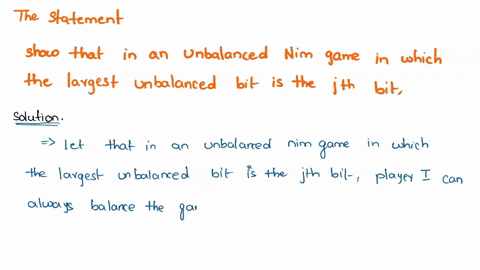 The Statement
show that in an unbalanced Nim game in which
the largest unbalanced bit is the jth bit,
Solution.
=> let that in an unbalanced nim game in which
the largest unbalanced bit is the jth bit, player I can
always balance the ga